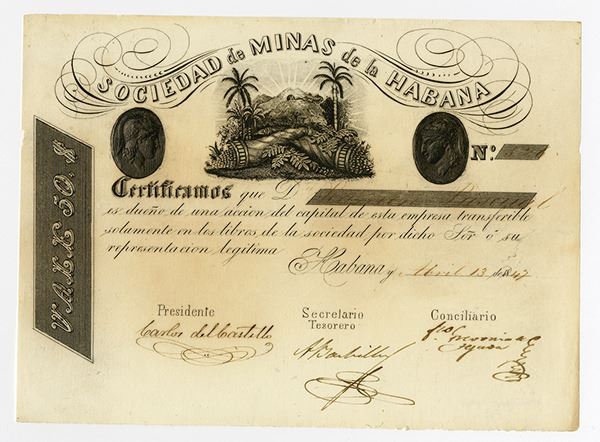 SOCIEDAD de MINAS de la HABANA
Nº.
VALE 50. $
Certificamos que D
es dueño de una accion del capital de esta empresa transferible
solamente en los libros de la sociedad por dicho Sôr ó su
representacion legitima
Habana y Abril 13 de 1847
Presidente
Carlos del Castillo
Secretario
Tezorero
Conciliario